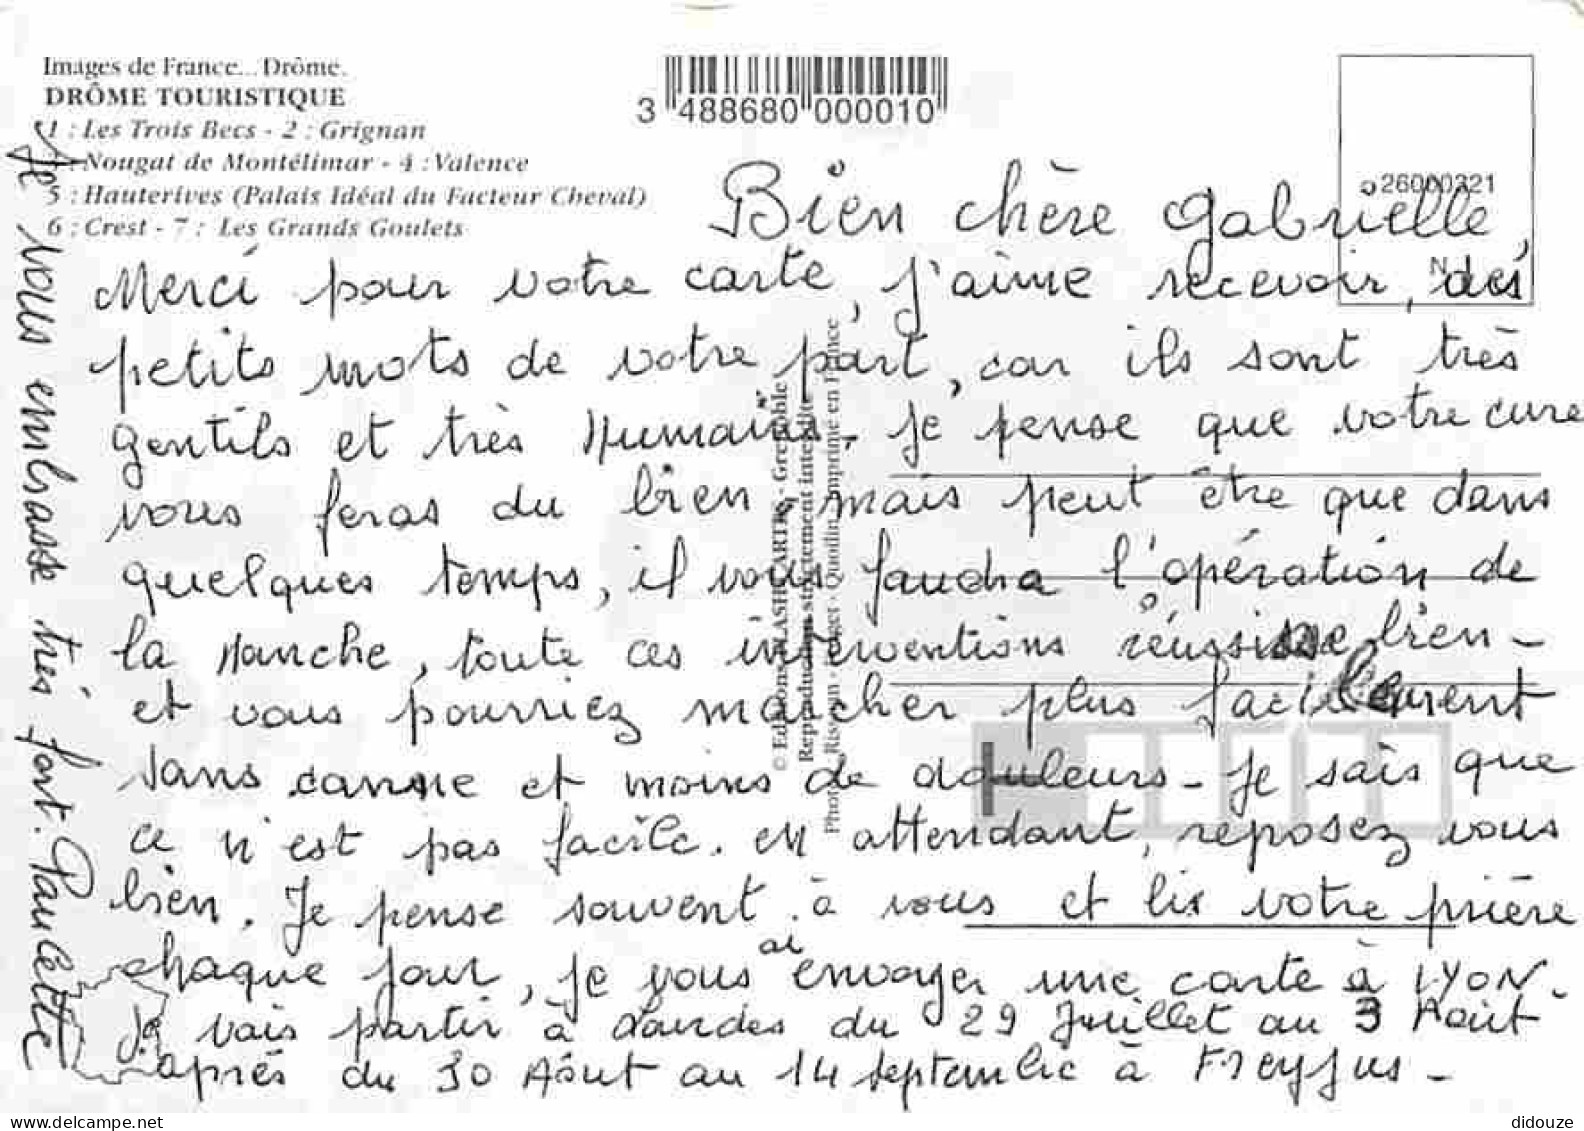 Images de France... Drôme.
DRÔME TOURISTIQUE
1 : Les Trois Becs - 2 : Grignan
: Nougat de Montélimar - 4 : Valence
5 : Hauterives (Palais Idéal du Facteur Cheval)
6 : Crest - 7 : Les Grands Goulets
3 488680 000010
26000321
Bien chère Gabrielle,
Merci pour votre carte, j'aime recevoir, des
petits mots de votre part, car ils sont très
gentils et très Humains. Je pense que votre cure
vous feras du bien mais peut être que dans
quelques temps, il vous faudra l'opération de
la Hanche, toute ces interventions réussisse bien -
et vous pourriez marcher plus facilement
sans canne et moins de douleurs - Je sais que
ce n'est pas facile. en attendant, reposez vous
bien. Je pense souvent à vous et lis votre prière
chaque jour, je vous ai envoyer une carte à LYON.
Je vais partir à Lourdes du 29 Juillet au 3 Août
après du 30 Août au 14 septembre à Freyjus -
Je vous embrasse très fort. Paulette
© Editions FLASH CARTES - Grenoble
Reproduction strictement interdite
Imprimé en France
www.delcampe.net
didouze